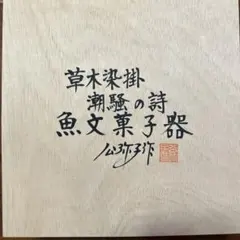 草木染掛
潮騒の詩
魚文菓子器